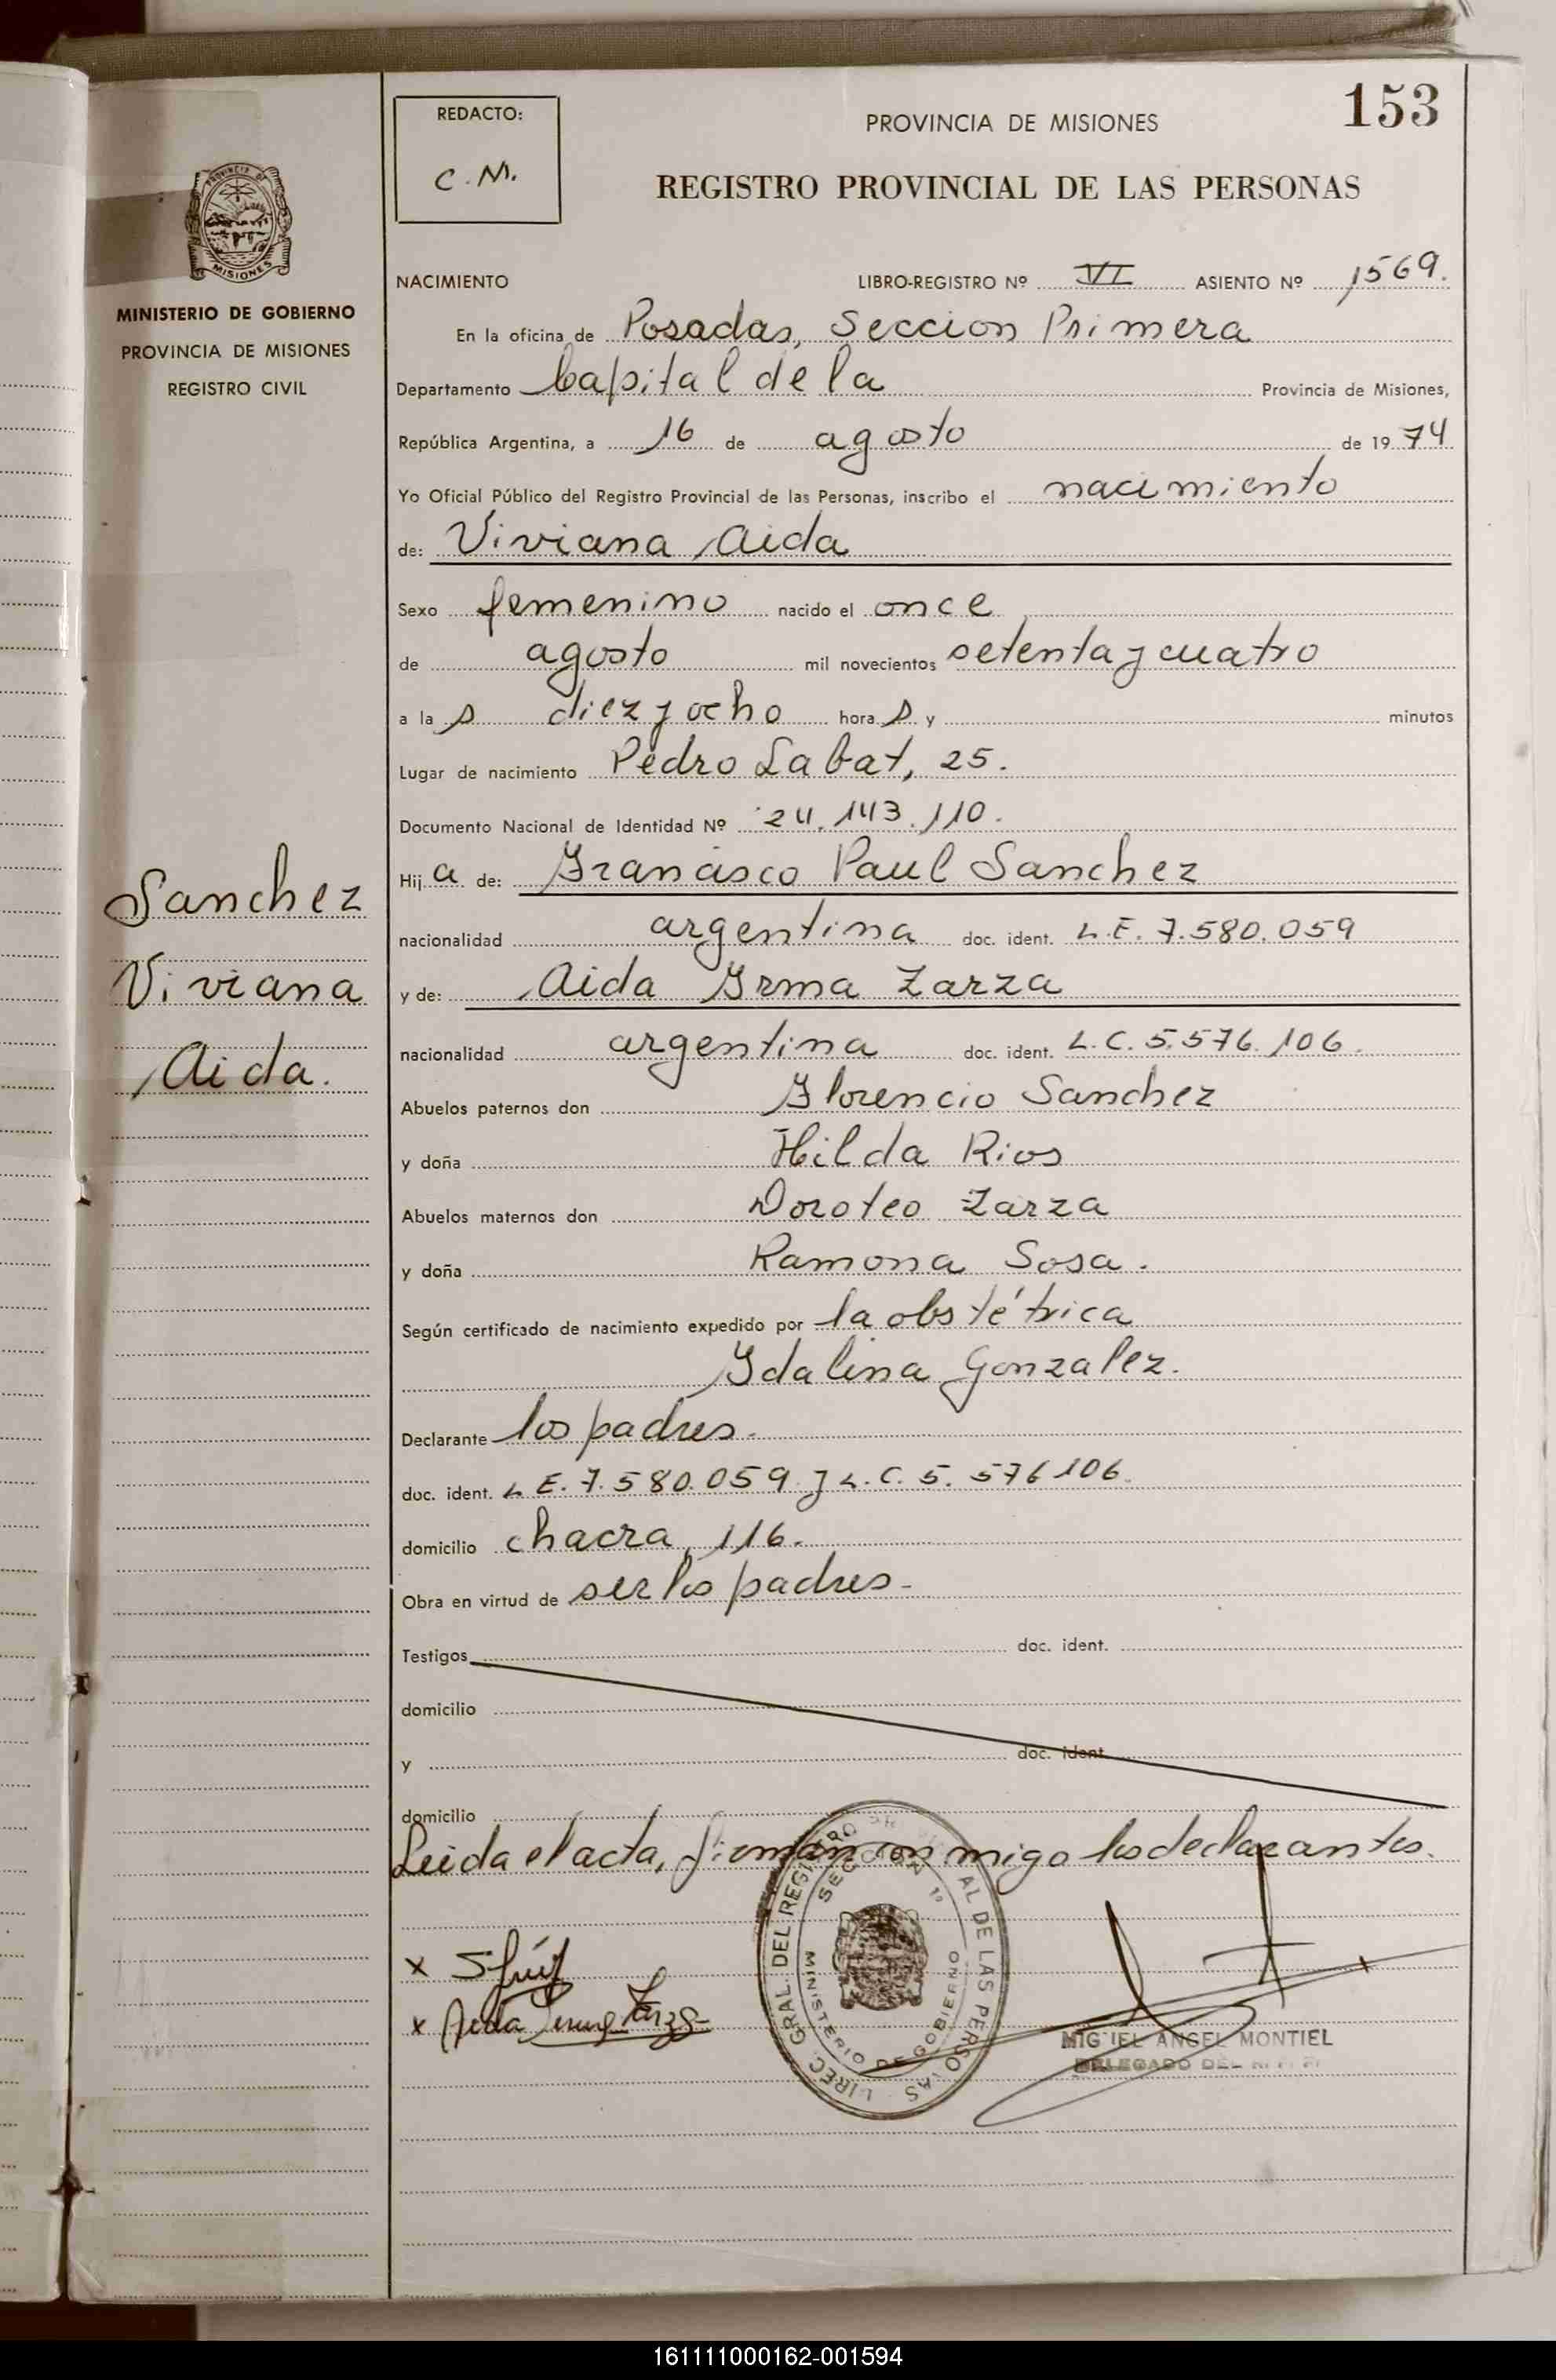 153
REDACTO:
C.M.
PROVINCIA DE MISIONES
REGISTRO PROVINCIAL DE LAS PERSONAS
MISIONES
MINISTERIO DE GOBIERNO
PROVINCIA DE MISIONES
REGISTRO CIVIL
NACIMIENTO LIBRO-REGISTRO Nº VI ASIENTO Nº 1569.
En la oficina de Posadas, Seccion Primera
Departamento Capital de la Provincia de Misiones,
República Argentina, a 16 de agosto de 1974
Yo Oficial Público del Registro Provincial de las Personas, inscribo el nacimiento
de: Viviana Aida
Sexo femenino nacido el once
de agosto mil novecientos setenta y cuatro
a la s diez y ocho hora s y minutos
Lugar de nacimiento Pedro Labat, 25.
Documento Nacional de Identidad Nº 24.143.110.
Hij a de: Francisco Paul Sanchez
nacionalidad argentina doc. ident. L.E. 7.580.059
y de: Aida Irma Zarza
nacionalidad argentina doc. ident. L.C. 5.576.106.
Abuelos paternos don Florencio Sanchez
y doña Hilda Rios
Abuelos maternos don Doroteo Zarza
y doña Ramona Sosa.
Según certificado de nacimiento expedido por la obstétrica
Idalina Gonzalez.
Declarante los padres.
doc. ident. L E. 7.580.059 y L.C. 5.576106.
domicilio chacra, 116.
Obra en virtud de ser los padres-
Testigos doc. ident.
domicilio
y doc. ident.
domicilio
Leida el acta, firman conmigo los declarantes.
Sanchez
Viviana
Aida.
x
x Aida Irma Zarza
MIGUEL ANGEL MONTIEL
DELEGADO DEL
MINISTERIO DE GOBIERNO
161111000162-001594